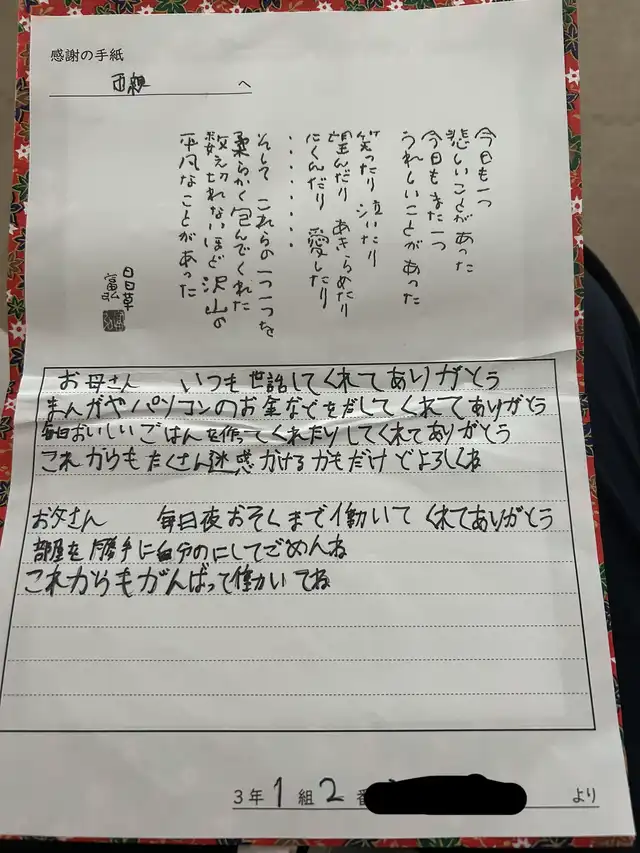 感謝の手紙
両親 へ
今日も一つ
悲しいことがあった
今日もまた一つ
うれしいことがあった
笑ったり 泣いたり
望んだり あきらめたり
にくんだり 愛したり
・・・・・・・
そして これらの一つ一つを
柔らかく包んでくれた
数え切れないほど沢山の
平凡なことがあった
日日草
富弘
お母さん いつも世話してくれてありがとう
まんがやパソコンのお金などをだしてくれてありがとう
毎日おいしいごはんを作ってくれたりしてくれてありがとう
これからもたくさん迷惑かけるかもだけどよろしくね
お父さん 毎日夜おそくまで働いてくれてありがとう
部屋を勝手に自分のにしてごめんね
これからもがんばって働いてね
3年 1 組 2 番 より